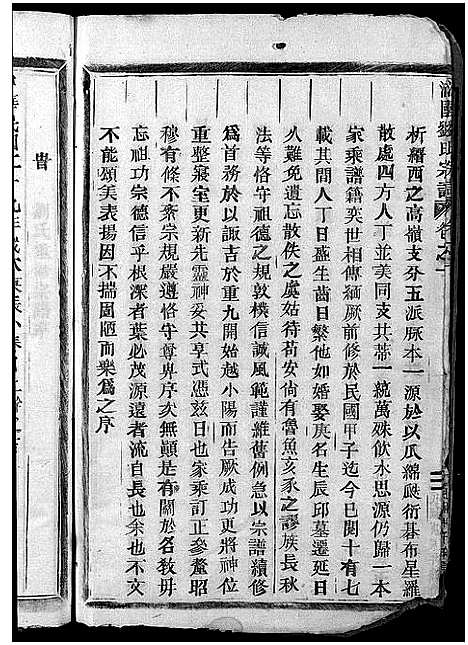 析籍西之高嶺支分五派脉本一源於以瓜綿瓞衍碁布星羅
散處四方人丁並美同支共蒂一統萬殊飲水思源仍歸一本
家乘譜籍奕世相傳緬厥前修於民國甲子迄今已閱十有七
載其間人丁日盛生齒日繁他如婚娶庚名生辰邱墓遷延日
久難免遺忘散佚之虞姑待苟安尚有魯魚亥豕之謬族長秋
法等恪守祖德之規敦樸信誠風範謹維舊例急以宗譜續修
為首務於以諏吉於重九開始越小陽而告厥成功更將神位
重整寢室而先靈神妥共享式憑兹日也家乘訂正參釐昭
穆有條不紊宗規嚴遵恪守尊卑序次無顛是有關於名教毋
忘祖功宗德信乎根深者葉必茂源遠者流自長也余也不文
不能頌美表揚因不揣固陋而樂為之序